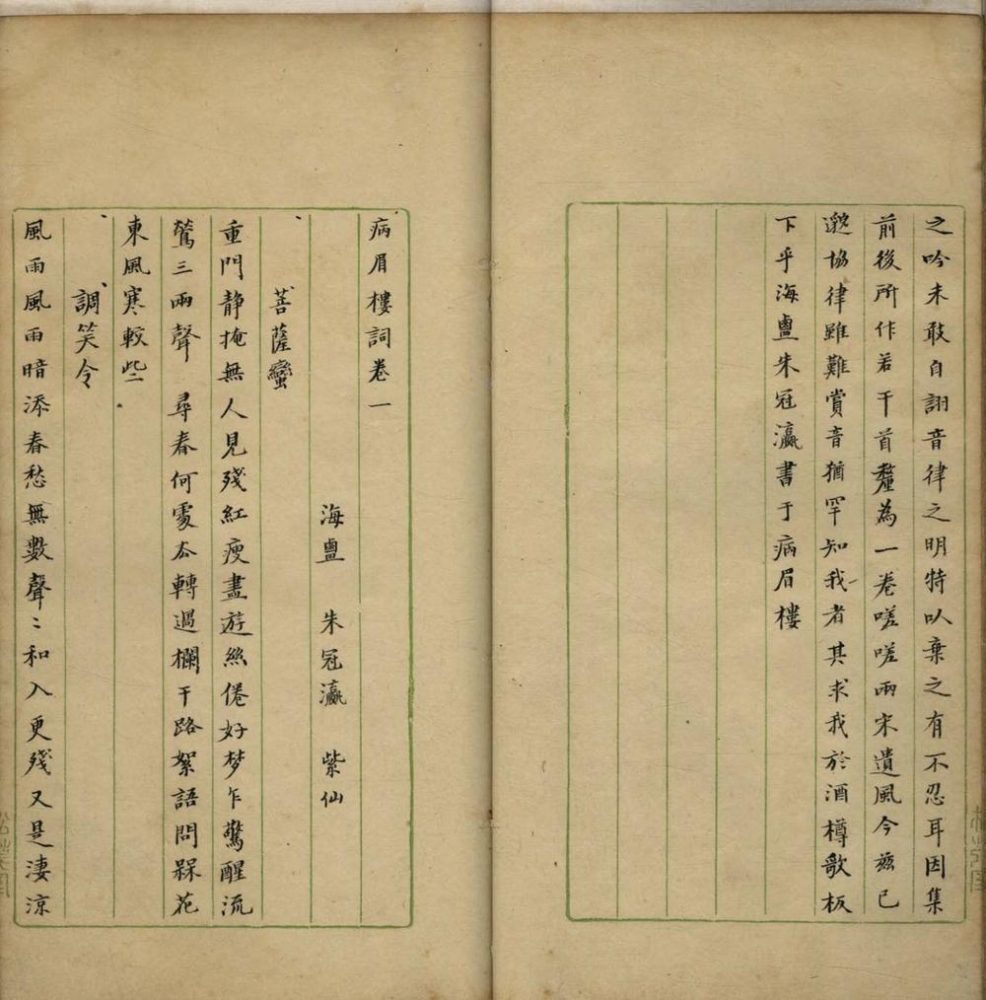 之吟未敢自詡音律之明特㕥棄之有不忍耳因集
前後所作若干首釐為一卷嗟嗟兩宋遺風今茲已
邈協律雖難賞音猶罕知我者其求我於酒樽歌板
下乎海鹽朱冠瀛書于病眉樓
病眉樓詞卷一
海鹽 朱冠瀛 紫仙
菩薩蠻
重門靜掩無人見殘紅瘦盡遊絲倦好梦乍驚醒流
鶯三兩聲 尋春何處去轉過欄干路絮語問槑花
東風寒較些
調笑令
風雨風雨暗添春愁無數聲〻和入更殘又是淒涼